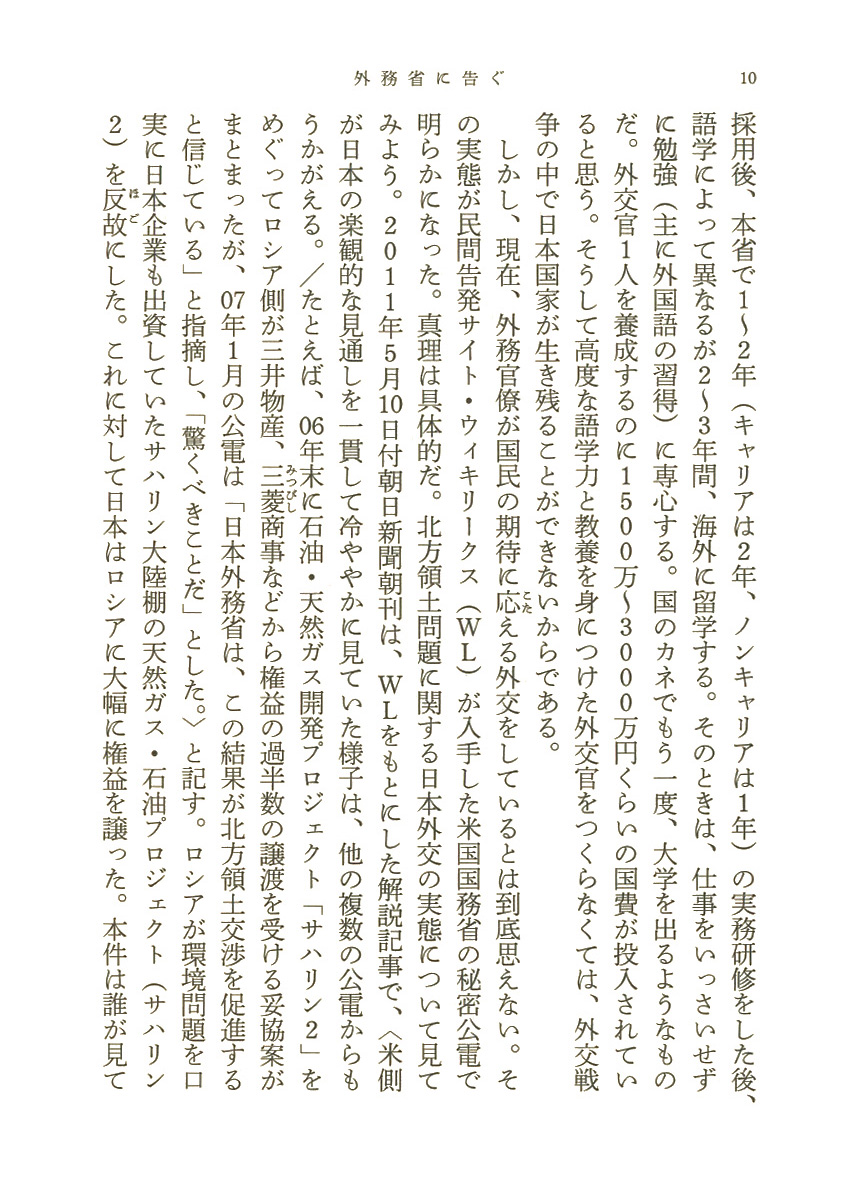 外務省に告ぐ
10
採用後、本省で1～2年（キャリアは2年、ノンキャリアは1年）の実務研修をした後、
語学によって異なるが2～3年間、海外に留学する。そのときは、仕事をいっさいせず
に勉強（主に外国語の習得）に専心する。国のカネでもう一度、大学を出るようなもの
だ。外交官1人を養成するのに1500万～3000万円くらいの国費が投入されてい
ると思う。そうして高度な語学力と教養を身につけた外交官をつくらなくては、外交戦
争の中で日本国家が生き残ることができないからである。
　しかし、現在、外務官僚が国民の期待に応こたえる外交をしているとは到底思えない。そ
の実態が民間告発サイト・ウィキリークス（WL）が入手した米国国務省の秘密公電で
明らかになった。真理は具体的だ。北方領土問題に関する日本外交の実態について見て
みよう。2011年5月10日付朝日新聞朝刊は、WLをもとにした解説記事で、〈米側
が日本の楽観的な見通しを一貫して冷ややかに見ていた様子は、他の複数の公電からも
うかがえる。／たとえば、06年末に石油・天然ガス開発プロジェクト「サハリン2」を
めぐってロシア側が三井物産、三菱みつびし商事などから権益の過半数の譲渡を受ける妥協案が
まとまったが、07年1月の公電は「日本外務省は、この結果が北方領土交渉を促進する
と信じている」と指摘し、「驚くべきことだ」とした。〉と記す。ロシアが環境問題を口
実に日本企業も出資していたサハリン大陸棚の天然ガス・石油プロジェクト（サハリン
2）を反故ほごにした。これに対して日本はロシアに大幅に権益を譲った。本件は誰が見て